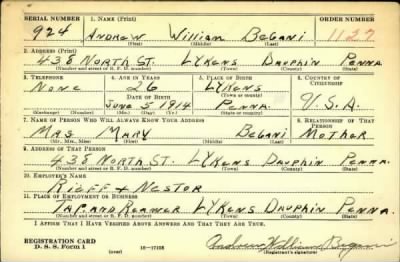 SERIAL NUMBER 1. NAME (Print) ORDER NUMBER
924 ANDREW William BEGANI 1127
(First) (Middle) (Last)
2. ADDRESS (Print)
438 NORTH ST. LYKENS DAUPHIN PENNA
(Number and street or R. F. D. number) (Town) (County) (State)
3. TELEPHONE 4. AGE IN YEARS 5. PLACE OF BIRTH 6. COUNTRY OF CITIZENSHIP
NONE 26 LYKENS
DATE OF BIRTH (Town or county)
JUNE 5 1914 PENNA. U.S.A.
(Exchange) (Number) (Mo.) (Day) (Yr.) (State or country)
7. NAME OF PERSON WHO WILL ALWAYS KNOW YOUR ADDRESS 8. RELATIONSHIP OF THAT PERSON
MRS MARY BEGANI MOTHER
(Mr., Mrs., Miss) (First) (Middle) (Last)
9. ADDRESS OF THAT PERSON
438 NORTH ST. LYKENS DAUPHIN PENNA.
(Number and street or R. F. D. number) (Town) (County) (State)
10. EMPLOYER'S NAME
RIEFF & NESTOR
11. PLACE OF EMPLOYMENT OR BUSINESS
TAP AND REAMER LYKENS DAUPHIN PENNA.
(Number and street or R. F. D. number) (Town) (County) (State)
I AFFIRM THAT I HAVE VERIFIED ABOVE ANSWERS AND THAT THEY ARE TRUE.
REGISTRATION CARD
D. S. S. Form 1 (over) 16—17105 Andrew William Begani
(Registrant's signature)